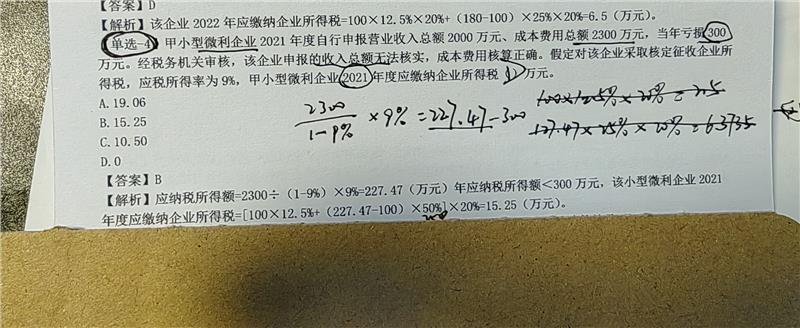 【答案】D
【解析】该企业 2022 年应缴纳企业所得税=100×12.5%×20%+(180-100)×25%×20%=6.5(万元)。
【单选-4】甲小型微利企业 2021 年度自行申报营业收入总额 2000 万元、成本费用总额 2300 万元，当年亏损 300
万元。经税务机关审核，该企业申报的收入总额无法核实，成本费用核算正确。假定对该企业采取核定征收企业所
得税，应税所得率为 9%，甲小型微利企业 2021 年度应缴纳企业所得税（ ）万元。
A.19.06
B.15.25
C.10.50
D.0
2300
1-9%
×9%=227.47-300
100×12.5%×20%=2.5
127.47×25%×20%=6.3735
【答案】B
【解析】应纳税所得额=2300÷(1-9%)×9%=227.47(万元)年应纳税所得额<300 万元，该小型微利企业 2021
年度应缴纳企业所得税=[100×12.5%+(227.47-100)×50%]×20%=15.25(万元)。